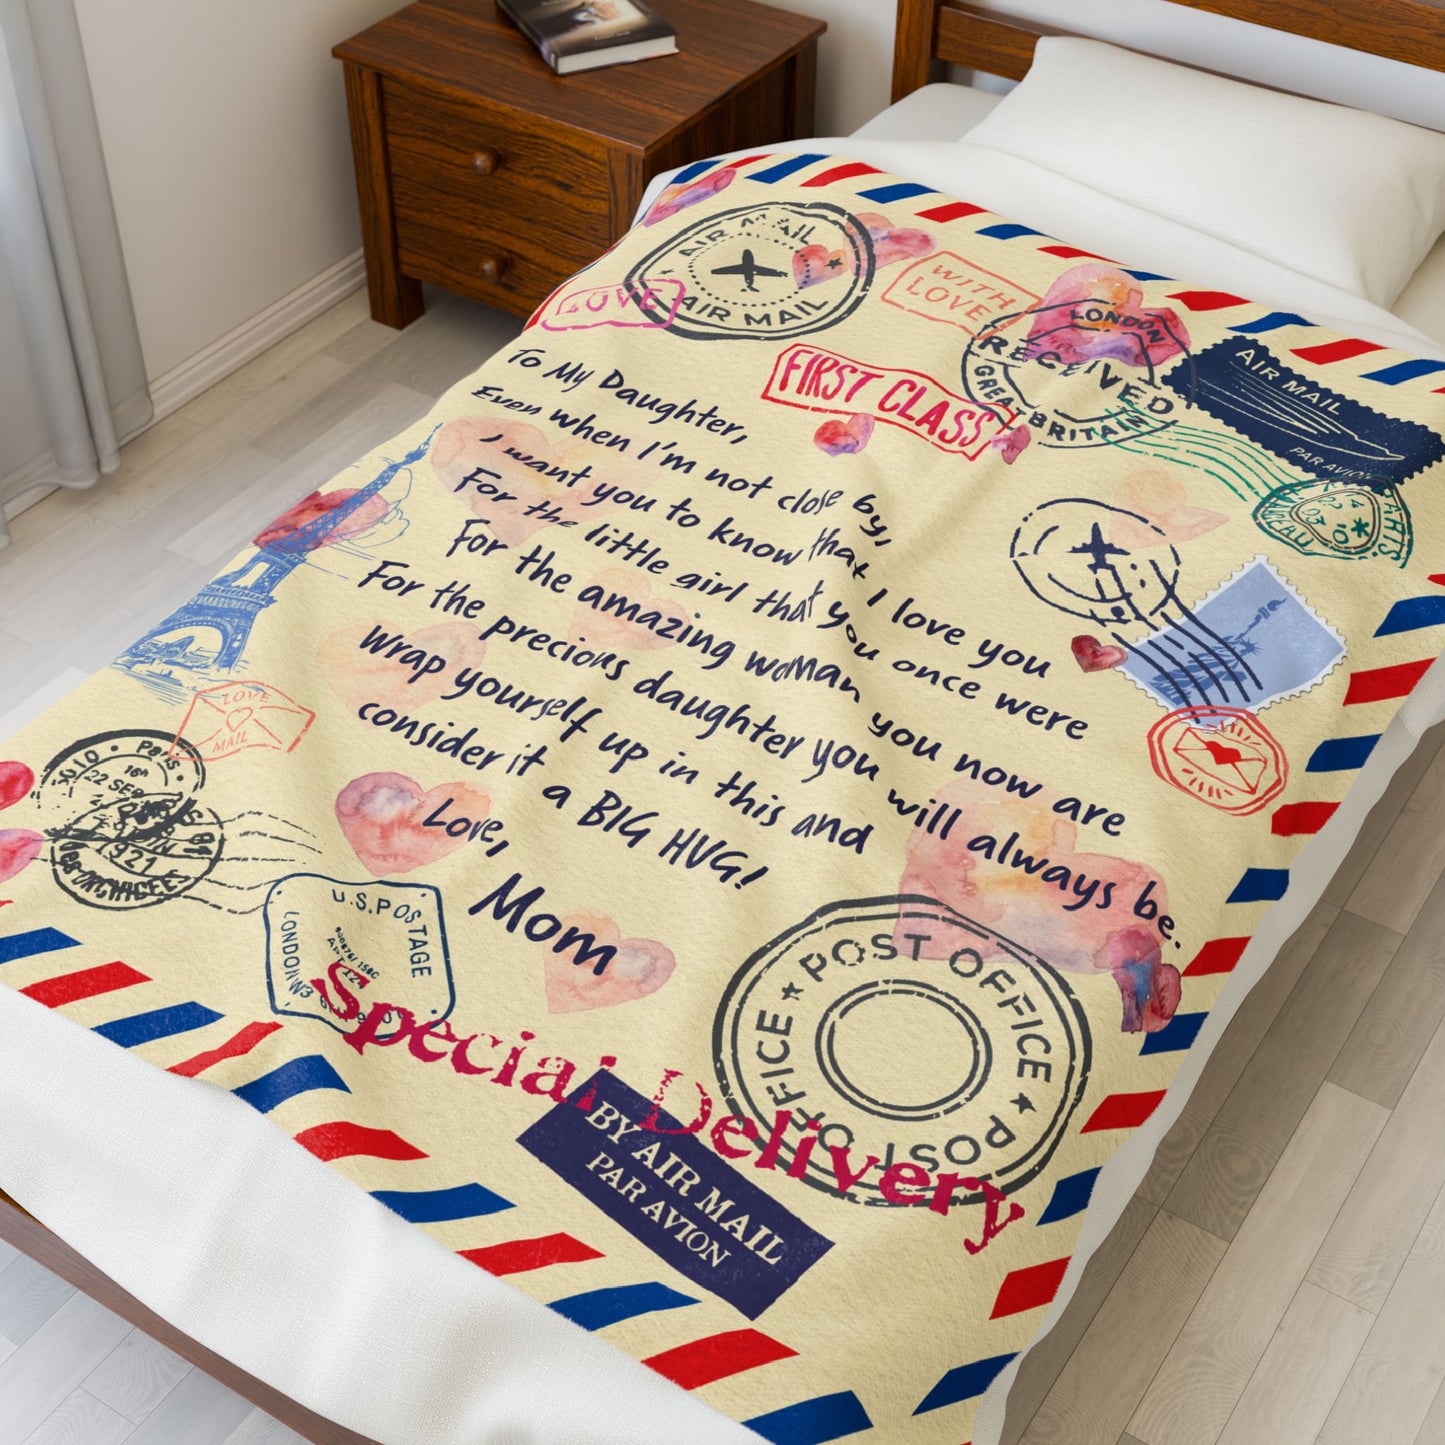 AIR MAIL
AIR MAIL
LOVE
WITH
LOVE
LONDON
RECEIVED
GREAT BRITAIN
FIRST CLASS
AIR MAIL
PAR AVION
To My Daughter,
Even when I'm not close by,
I want you to know that I love you
For the little girl that you once were
For the amazing woman you now are
For the precious daughter you will always be.
Wrap yourself up in this and
consider it a BIG HUG!
Love,
Mom
LOVE
MAIL
Paris
16h
22 SEP
1921
U.S.POSTAGE
LONDON W3
POST OFFICE ★ POST OFFICE ★
Special Delivery
BY AIR MAIL
PAR AVION